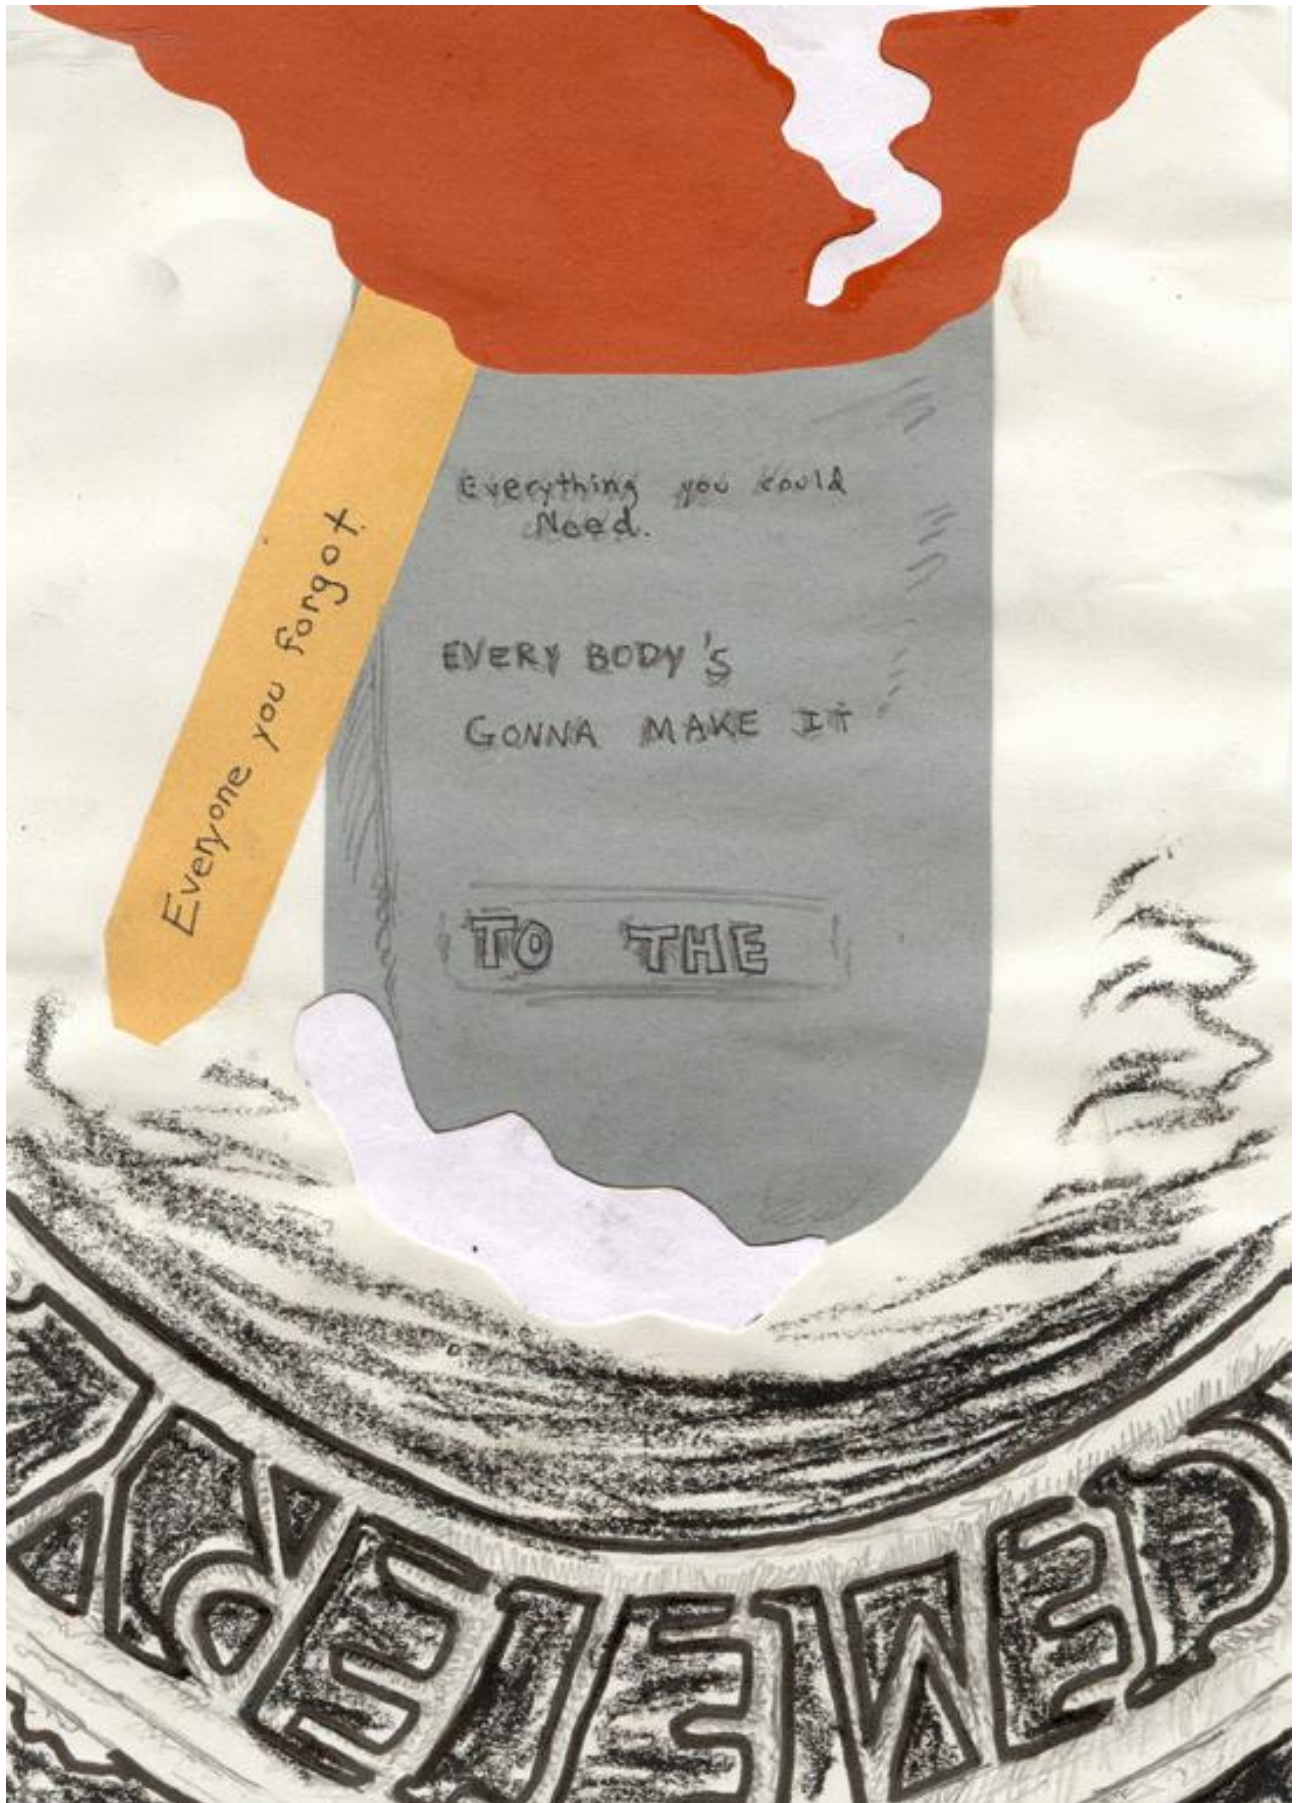 Everyone you forgot
Everything you could
Need.
EVERY BODY'S
GONNA MAKE IT
TO THE
CEMETERY